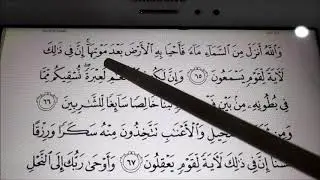 وَٱللَّهُ أَنزَلَ مِنَ ٱلسَّمَآءِ مَآءً فَأَحْيَا بِهِ ٱلْأَرْضَ بَعْدَ مَوْتِهَآ إِنَّ فِى ذَٰلِكَ
لَءَايَةً لِّقَوْمٍ يَسْمَعُونَ ٦٥ وَإِنَّ لَكُمْ لَعِبْرَةً نُّسْقِيكُم مِّمَّا
فِى بُطُونِهِۦ مِنۢ بَيْنِ لَّبَنًا خَالِصًا سَآئِغًا لِّلشَّٰرِبِينَ ٦٦
وَمِن وَٱلْأَعْنَٰبِ تَتَّخِذُونَ مِنْهُ سَكَرًا وَرِزْقًا
إِنَّ فِى ذَٰلِكَ لَءَايَةً لِّقَوْمٍ يَعْقِلُونَ ٦٧ وَأَوْحَىٰ رَبُّكَ إِلَى ٱلنَّحْلِ